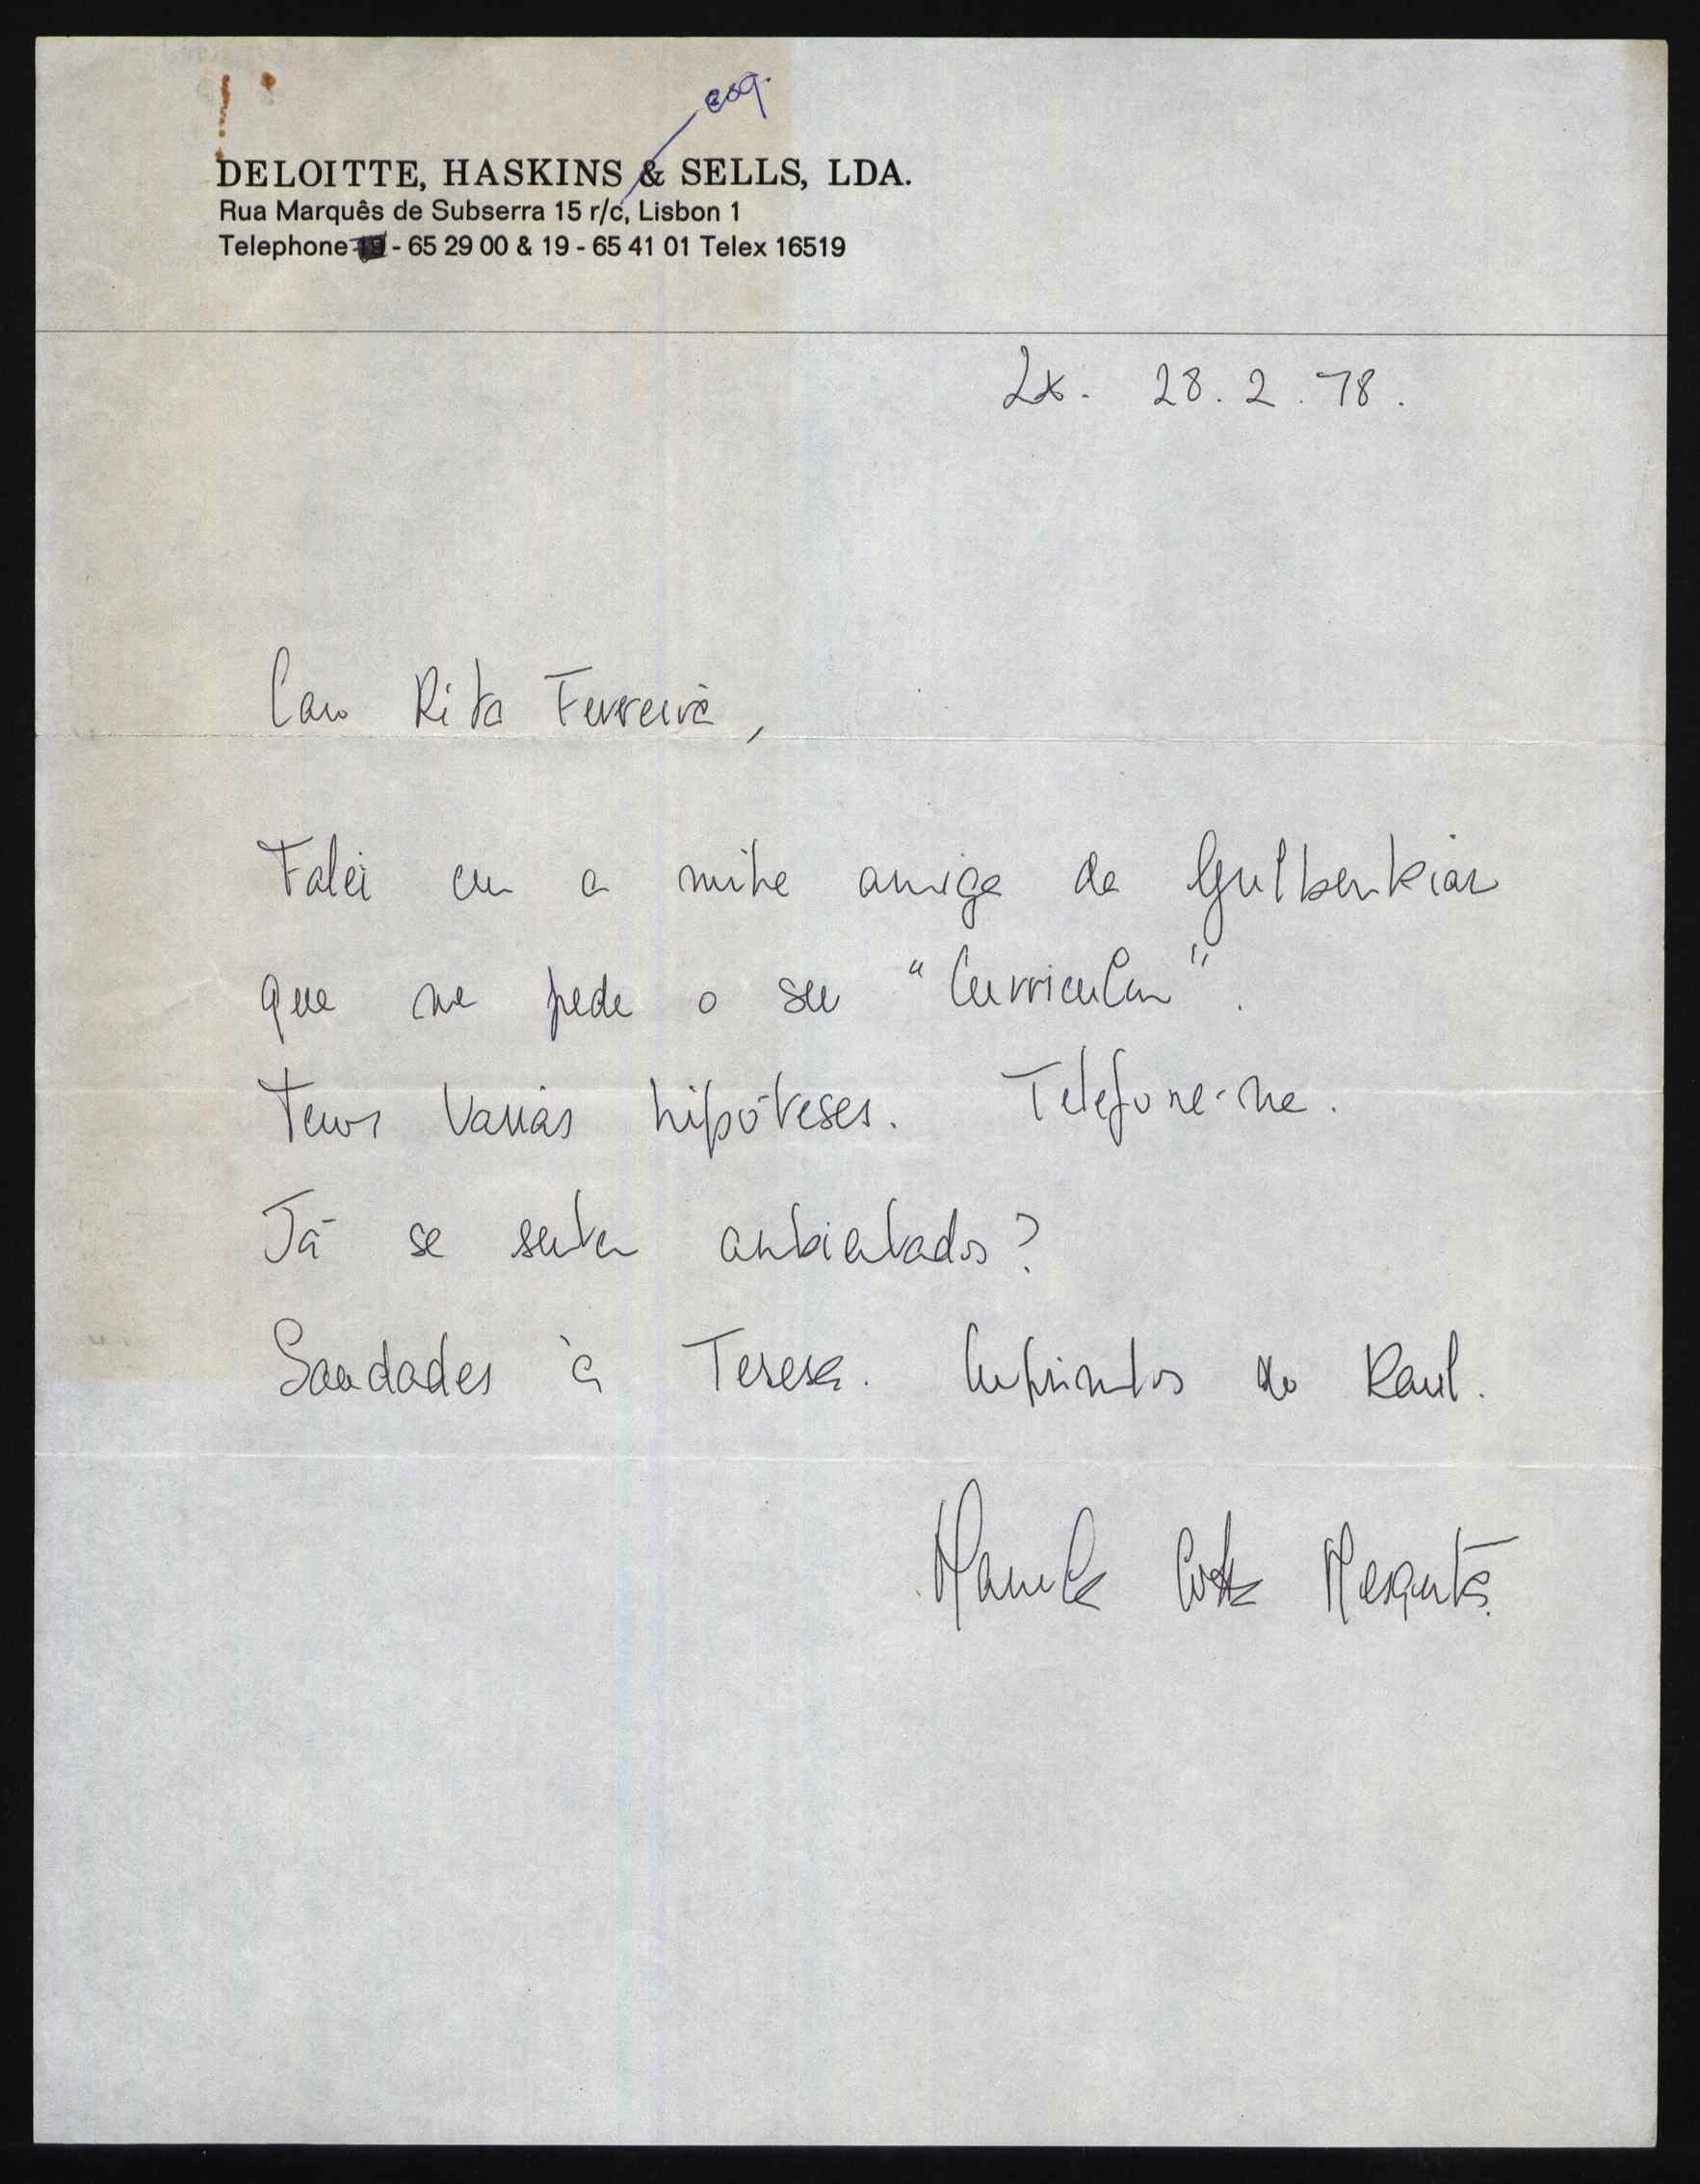 esq.
DELOITTE, HASKINS & SELLS, LDA.
Rua Marquês de Subserra 15 r/c, Lisbon 1
Telephone 19 - 65 29 00 & 19 - 65 41 01 Telex 16519
Lx. 28.2.78.
Caro Rita Ferreira,
Falei com a minha amiga da Gulbenkian
que me pede o seu "Curriculum".
Temos várias hipóteses. Telefone-me.
Já se sentem ambientados?
Saudades à Teresa. Cumprimentos do Raul.
Manuela Costa Mesquita